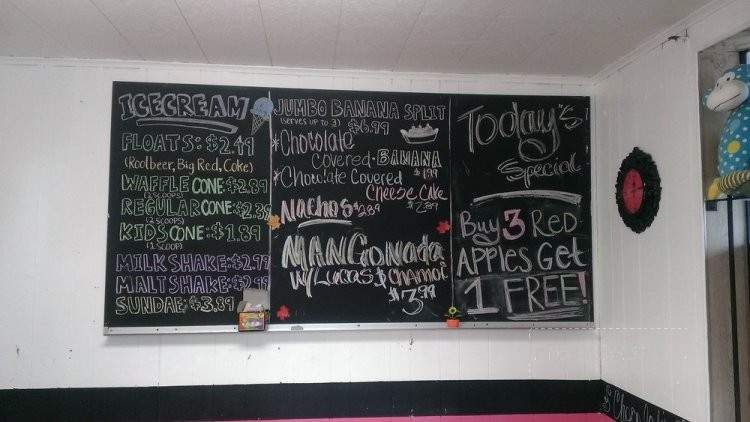 ICECREAM
FLOATS: $2.49
(Rootbeer, Big Red, Coke)
WAFFLE CONE: $2.89
(2 SCOOPS)
REGULAR CONE: $2.39
(2 SCOOPS)
KIDS CONE: $1.89
(1 SCOOP)
MILKSHAKE: $2.99
MALTSHAKE: $2.99
SUNDAE: $3.89
JUMBO BANANA SPLIT
(serves up to 3) $6.99
*Chocolate
COVERED • BANANA
$1.99
*Chocolate Covered
CHEESE CAKE
Nachos $2.89
$2.89
MANGonada
W/ Lucas & CHAMOI
$3.99
Today's
Special
Buy 3 Red
APPLES Get
1 FREE!